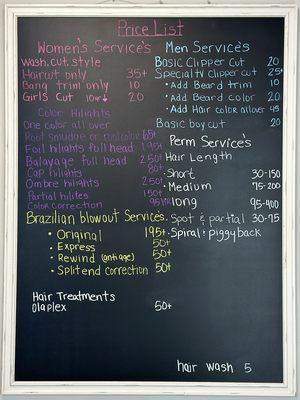 Price List
Women's Services
Wash, cut, style
Haircut only 35+
Bang trim only 10
Girls Cut 10or↓ 20
Color Hilights
One color all over
Root Smudge or rootcolor 65+
Foil hilights full head 195+
Balayage full head 250+
Cap hilights 80+
Ombre hilights 250+
Partial hilites 150+
Color correction
Brazilian blowout Services
• Original 195+
• Express 50+
• Rewind (antiage) 50+
• Splitend correction 50+
Hair Treatments
Olaplex 50+
Men Services
Basic Clipper Cut 20
Specialty Clipper cut 25+
• Add Beard trim 10
• Add Beard color 20
• Add Hair color allover 45
Basic boy cut 20
Perm Services
Hair Length
Short 30-150
Medium 75-200
long 95-400
Spot & partial 30-75
Spiral & Piggyback
hair wash 5